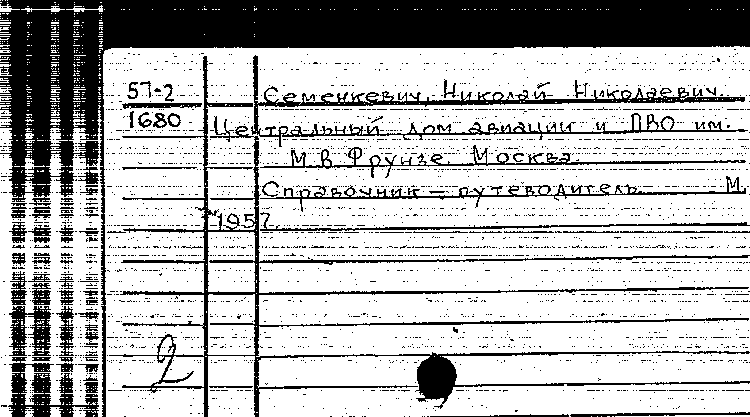 57-2 Семенкевич, Николай Николаевич.
1680 Центральный дом авиации и ПВО им.
М.В. Фрунзе. Москва.
Справочник – путеводитель. М.
1957.
2